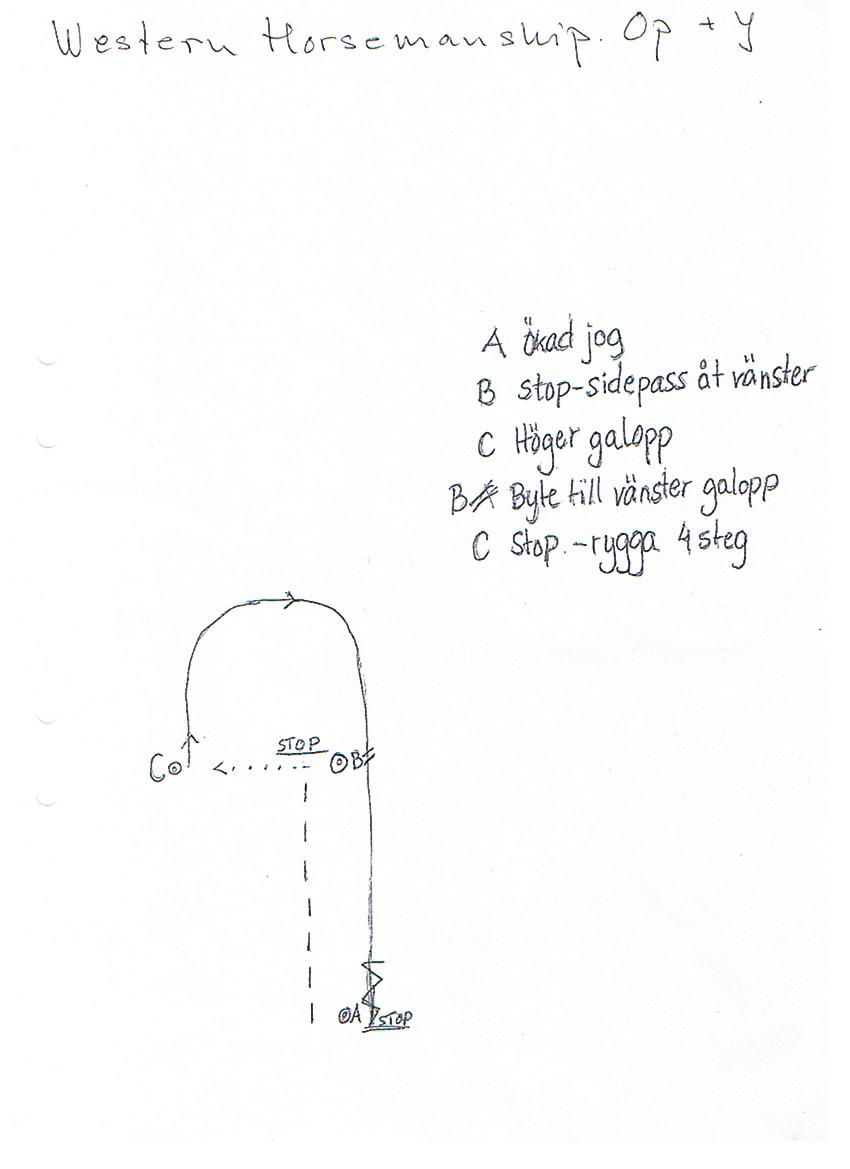 Western Horsemanship. Op + Y
A ökad jog
B stop-sidepass åt vänster
C Höger galopp
B Byte till vänster galopp
C Stop.-rygga 4 steg
STOP
C B
A STOP